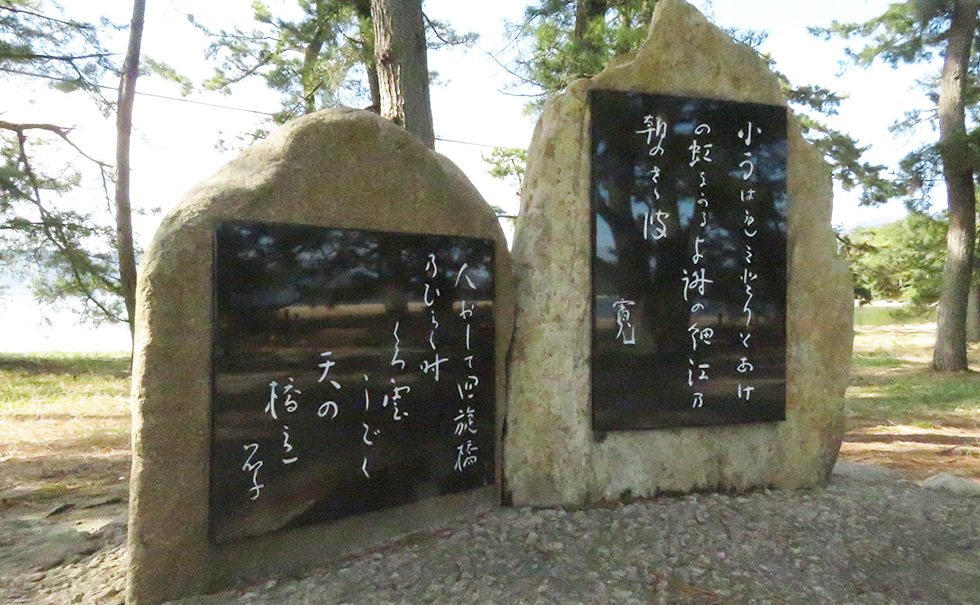 小雨はれミどりとあけ
の虹ながる与謝の細江乃
朝のさゝ波
寛
人おして回旋橋
乃ひらく時
くろ雲
うごく
天の
橋立
晶子